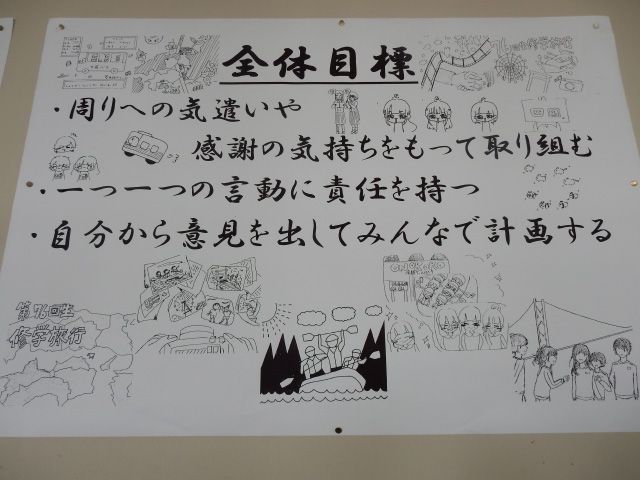 全体目標
・周りへの気遣いや
感謝の気持ちをもって取り組む
・一つ一つの言動に責任を持つ
・自分から意見を出してみんなで計画する
第76回生
修学旅行